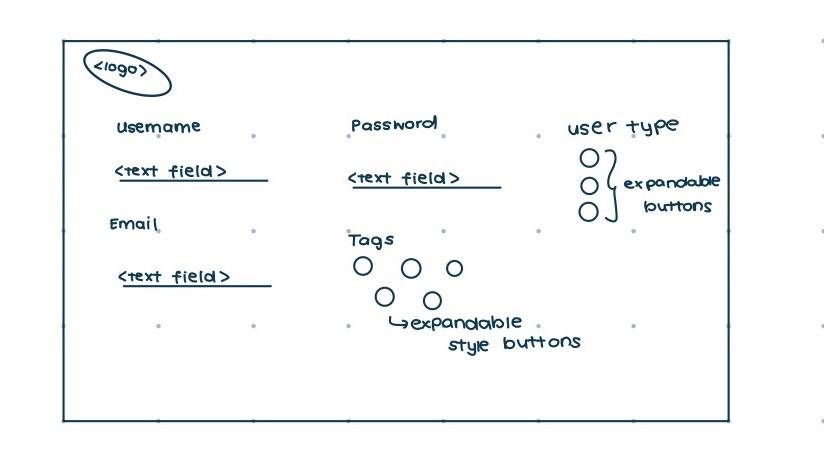 <logo>
Username
<text field>
Email
<text field>
Password
<text field>
Tags
expandable
style buttons
user type
expandable
buttons